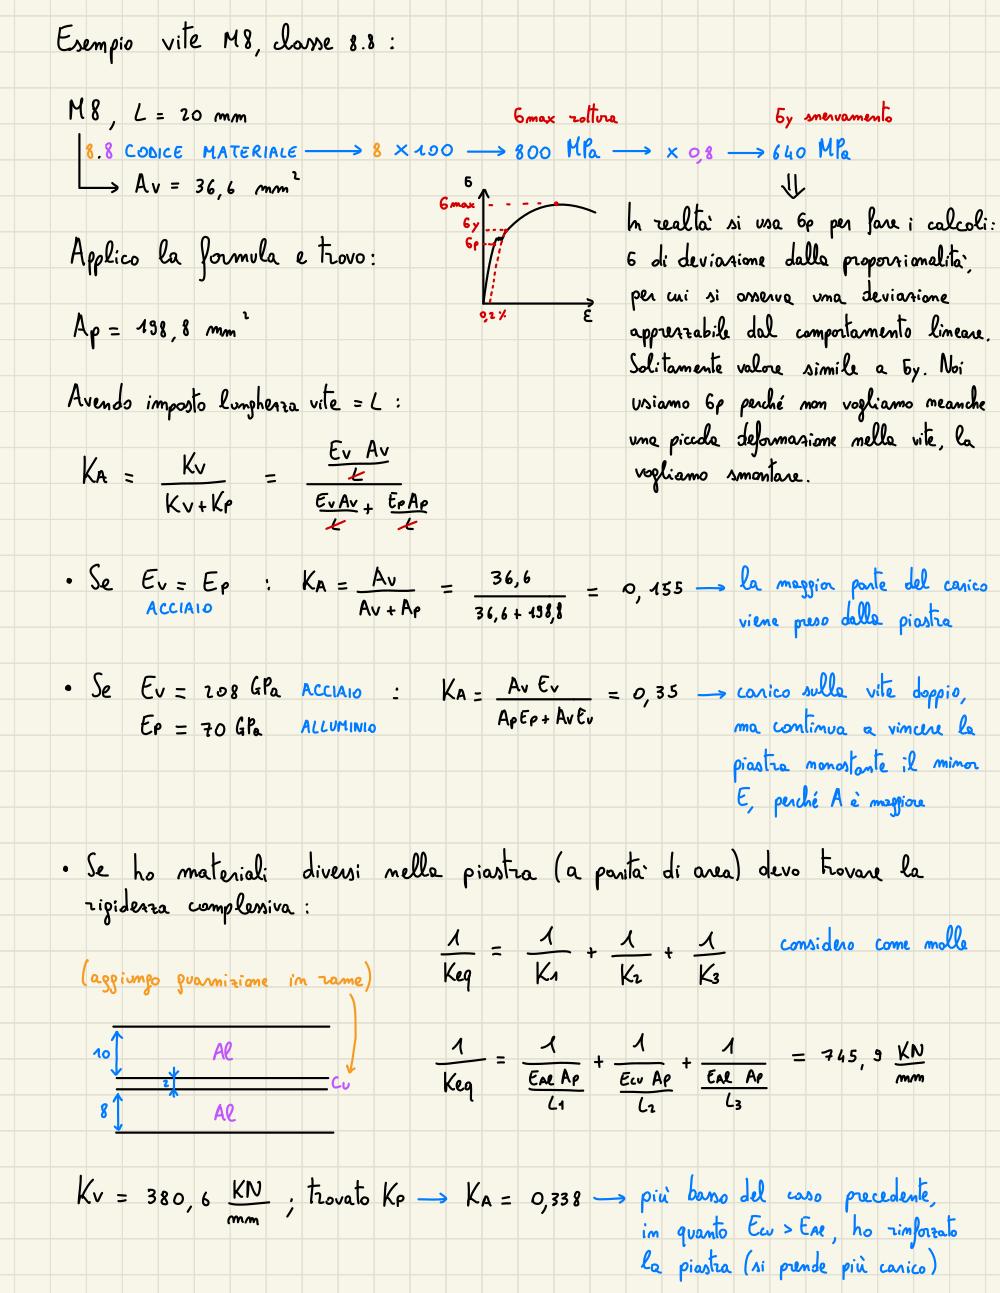 Esempio vite M8, classe 8.8 :
M8, L = 20 mm
8.8 CODICE MATERIALE → 8 ×100 → 800 MPa → × 0,8 → 640 MPa
σmax rottura
σy snervamento
Av = 36,6 mm²
σ
σmax
σy
σp
0,2%
ε
⇓
In realtà si usa σp per fare i calcoli:
σ di deviazione dalla proporzionalità,
per cui si osserva una deviazione
apprezzabile dal comportamento lineare.
Solitamente valore simile a σy. Noi
usiamo σp perché non vogliamo neanche
una piccola deformazione nella vite, la
vogliamo smontare.
Applico la formula e trovo:
Ap = 198,8 mm²
Avendo imposto lunghezza vite = L :
KA = Kv / (Kv+Kp) = (Ev Av / L) / (EvAv / L + EpAp / L)
• Se Ev = Ep : KA = Av / (Av + Ap) = 36,6 / (36,6 + 198,8) = 0,155 → la maggior parte del carico
ACCIAIO
viene preso dalla piastra
• Se Ev = 208 GPa ACCIAIO : KA = Av Ev / (ApEp + AvEv) = 0,35 → carico sulla vite doppio,
Ep = 70 GPa ALLUMINIO
ma continua a vincere la
piastra nonostante il minor
E, perché A è maggiore
• Se ho materiali diversi nella piastra (a parità di area) devo trovare la
rigidezza complessiva :
1/Keq = 1/K1 + 1/K2 + 1/K3 considero come molle
(aggiungo guarnizione in rame)
10 Al
2 Cu
8 Al
1/Keq = 1/(EAl Ap / L1) + 1/(Ecu Ap / L2) + 1/(EAl Ap / L3) = 745,9 KN/mm
Kv = 380,6 KN/mm ; trovato Kp → KA = 0,338 → più basso del caso precedente,
in quanto Ecu > EAl, ho rinforzato
la piastra (si prende più carico)